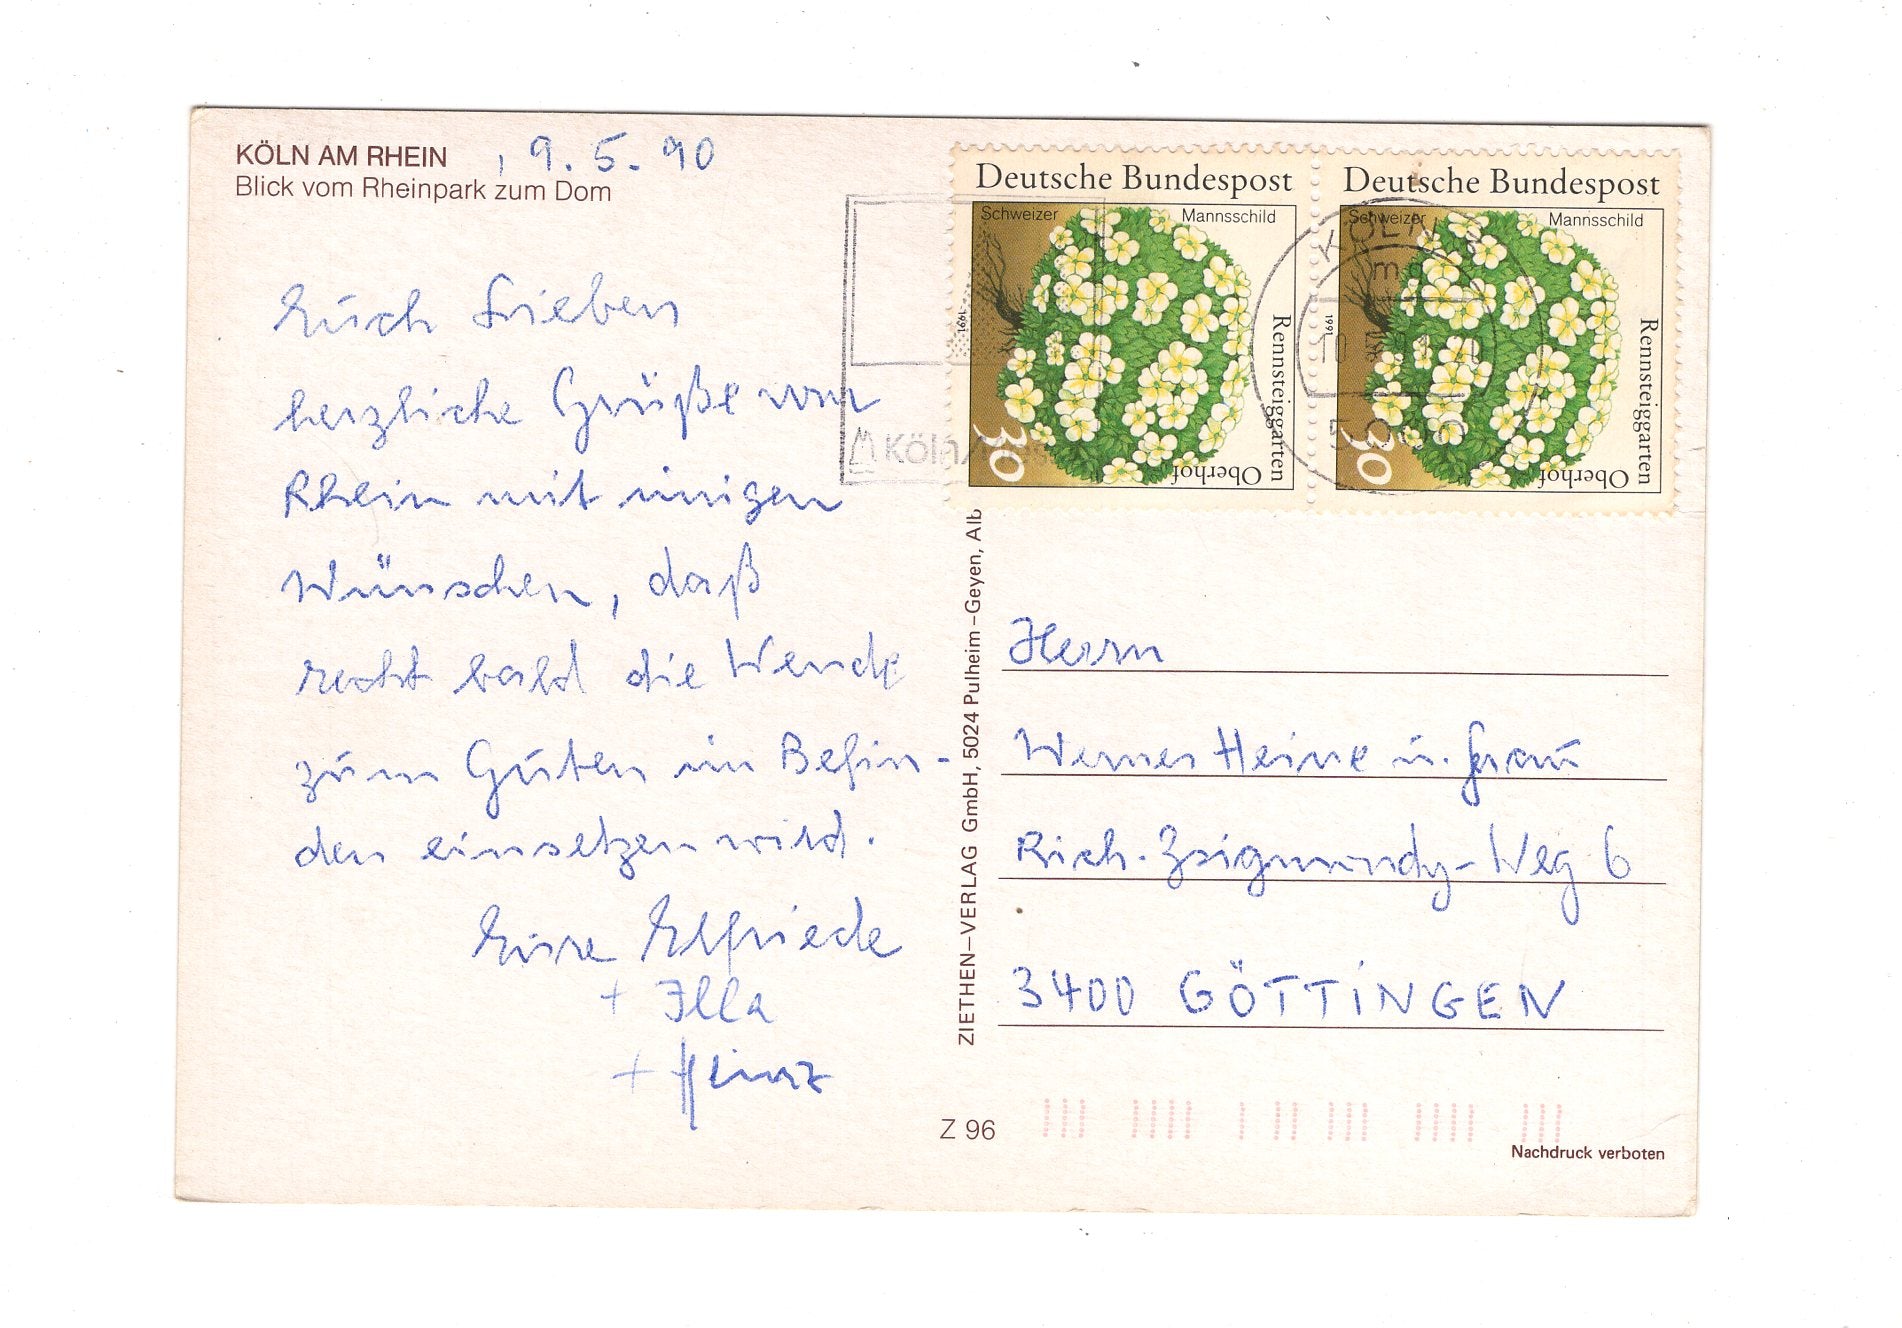 KÖLN AM RHEIN , 9.5.90
Blick vom Rheinpark zum Dom
Euch Lieben
herzliche Grüße vom
Rhein mit innigen
Wünschen, daß
recht bald die Wende
zum Guten im Befin-
den einsetzen wird.
Eure Elfriede
+ Illa
+ Heinz
Deutsche Bundespost
Schweizer Mannsschild
Rennsteiggarten
Oberhof
1991
30
Deutsche Bundespost
Schweizer Mannsschild
Rennsteiggarten
Oberhof
1991
30
Köln
KÖLN
ZIETHEN-VERLAG GmbH, 5024 Pulheim-Geyen, Alb
Herrn
Werner Heine u. Frau
Rich.-Zsigmondy-Weg 6
3400 GÖTTINGEN
Z 96
Nachdruck verboten